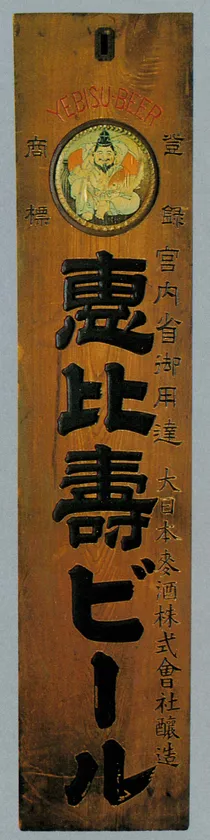 YEBISU・BEER
登録
商標
宮内省御用達 大日本麥酒株式會社醸造
恵比壽ビール